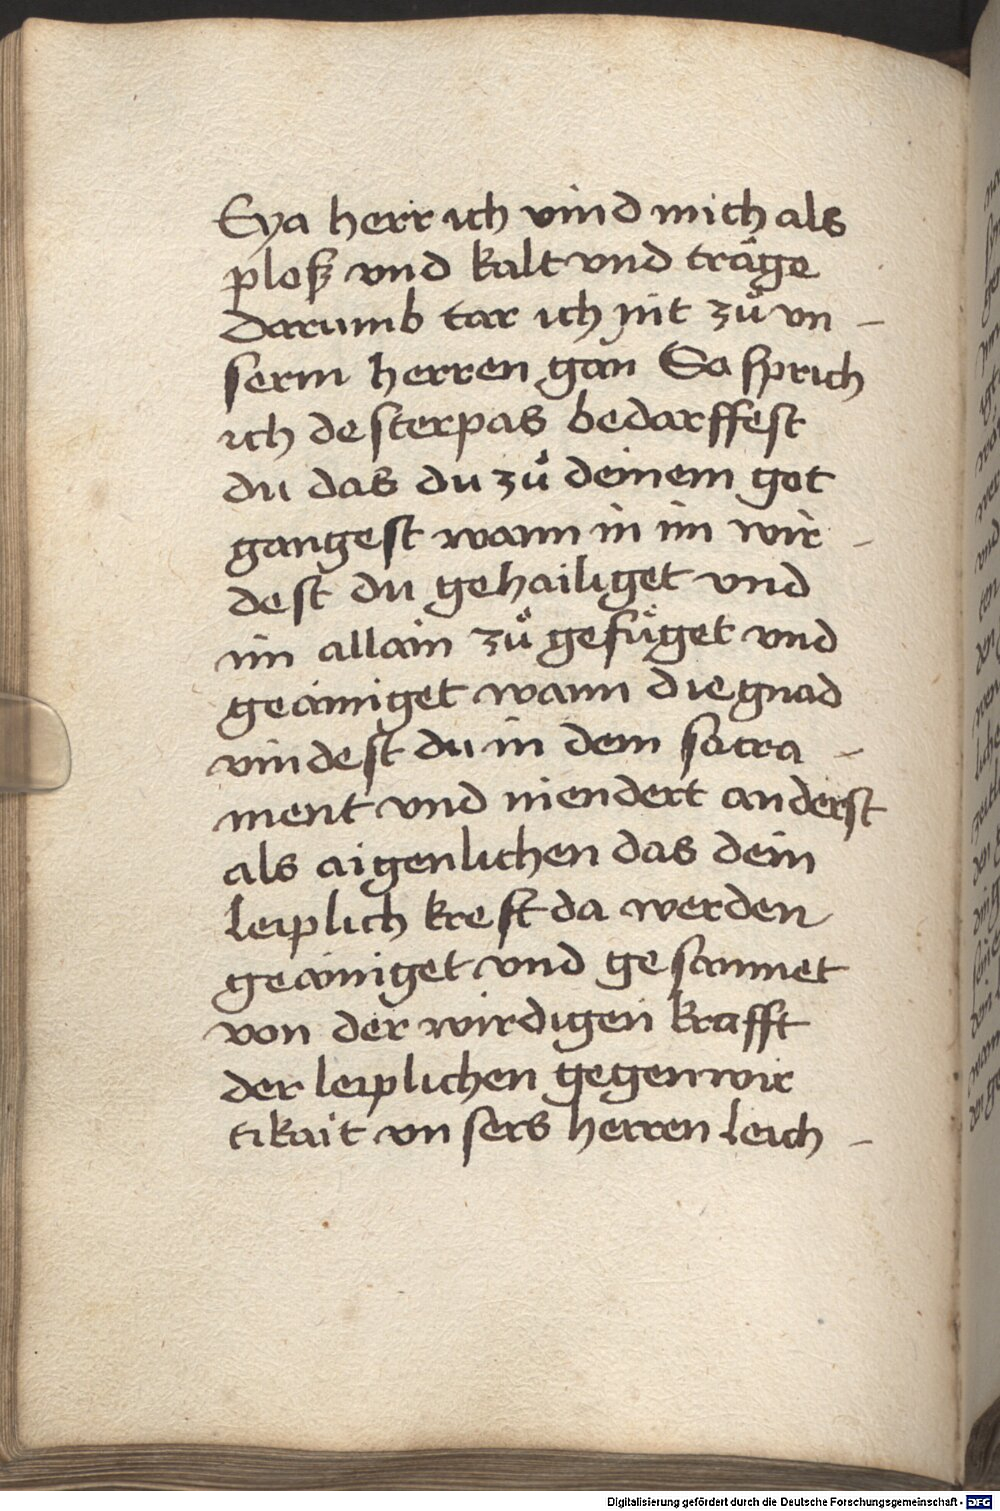 Eya herr ich vind mich als
ploß vnd kalt vnd träge
darumb tar ich nit zů vn –
serm herren gan So sprich
ich desterpas bedarffest
du das du zů deinem got
gangest wann in im wir –
dest du gehailiget vnd
im allain zů gefüget vnd
geainiget wann die gnad
vindest du in dem sacra –
ment vnd niendert anderst
als aigenlichen das dein
leiplich kreft da werden
geainiget vnd gesamnet
von der wirdigen krafft
der leiplichen gegenwir
tikait vnsers herren leich –
Digitalisierung gefördert durch die Deutsche Forschungsgemeinschaft - DFG